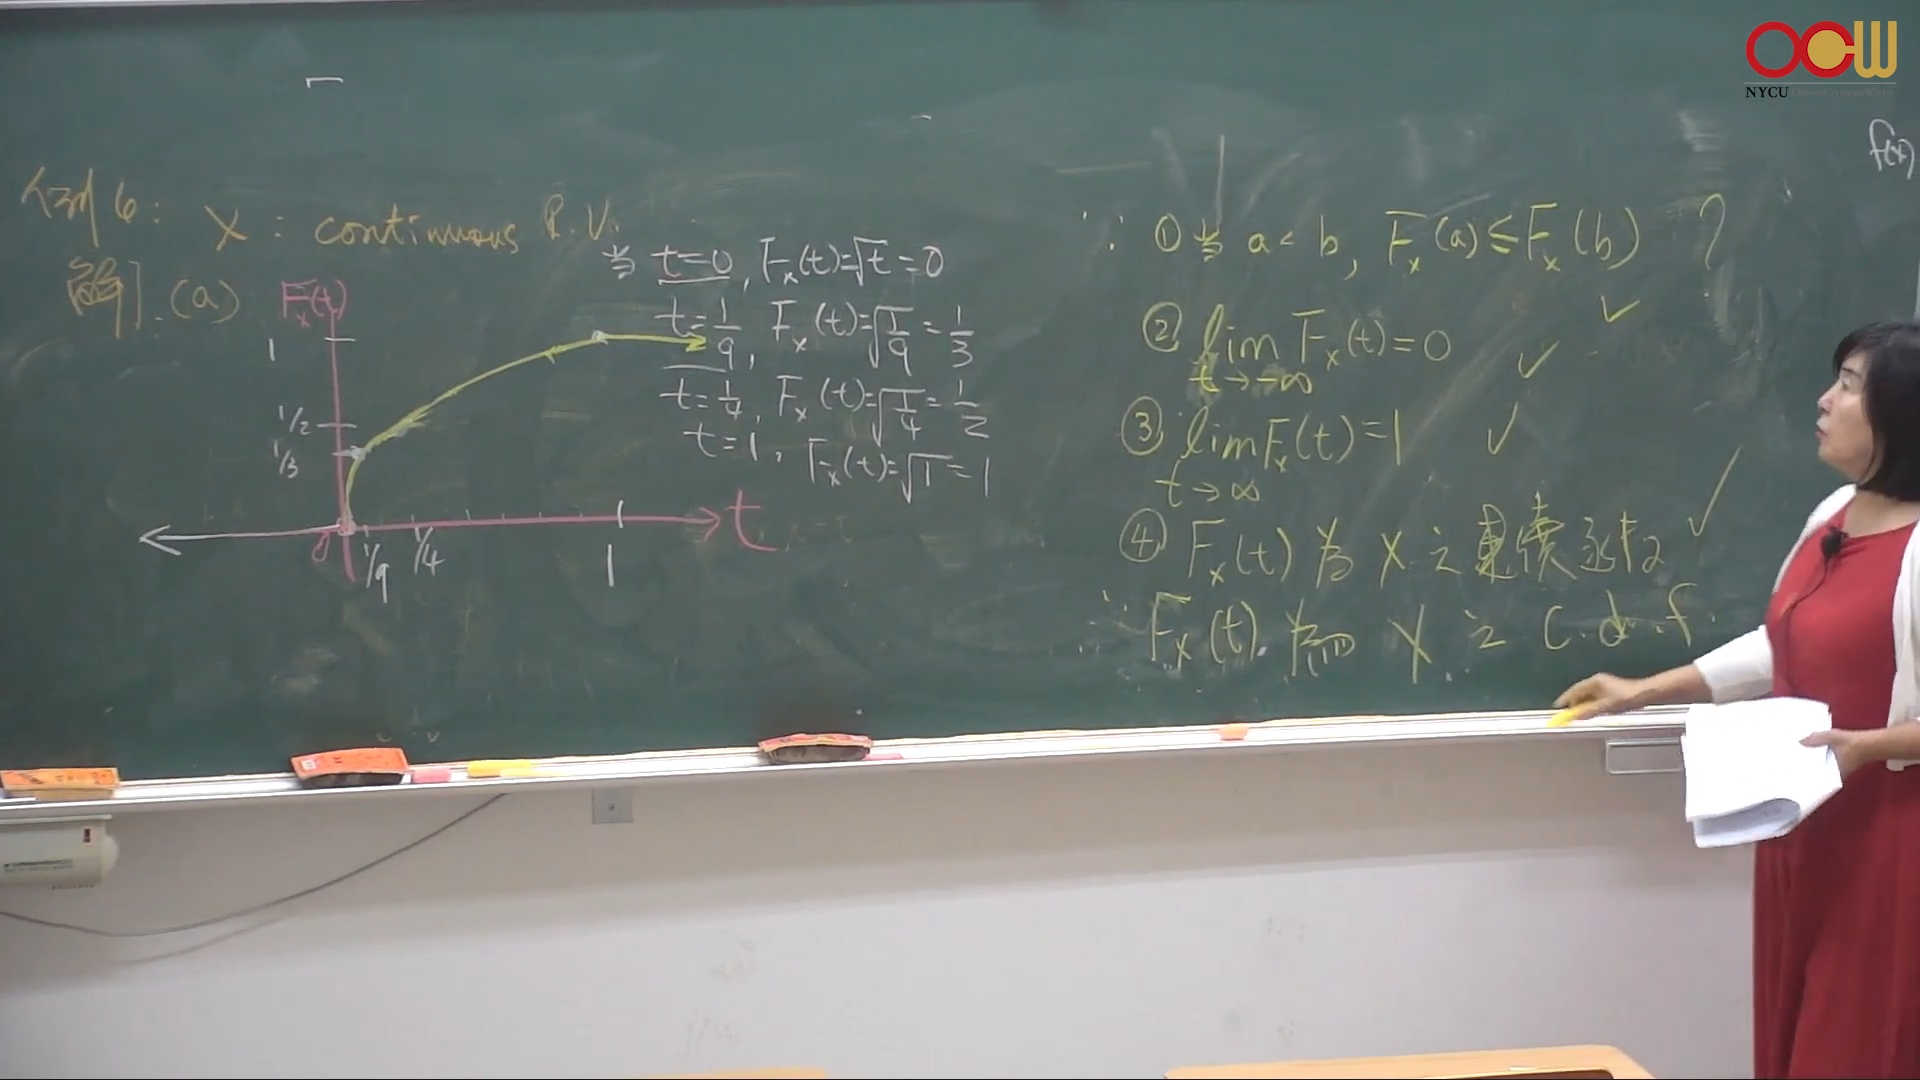 OCW
NYCU OpenCourseWare
f(x)
例6: X : continuous R.V.
解]. (a)
F_x(t)
1
1/2
1/3
0
1/9
1/4
1
t
当 t=0, F_x(t)=√t=0
t=1/9, F_x(t)=√(1/9)=1/3
t=1/4, F_x(t)=√(1/4)=1/2
t=1, F_x(t)=√1=1
∵ ① 当 a<b, F_x(a)≤F_x(b) ?
✓
② lim F_x(t)=0 ✓
t→-∞
③ lim F_x(t)=1 ✓
t→∞
④ F_x(t) 为 X 之 連續 ✓
∴ F_x(t) 為 X 之 c.d.f.